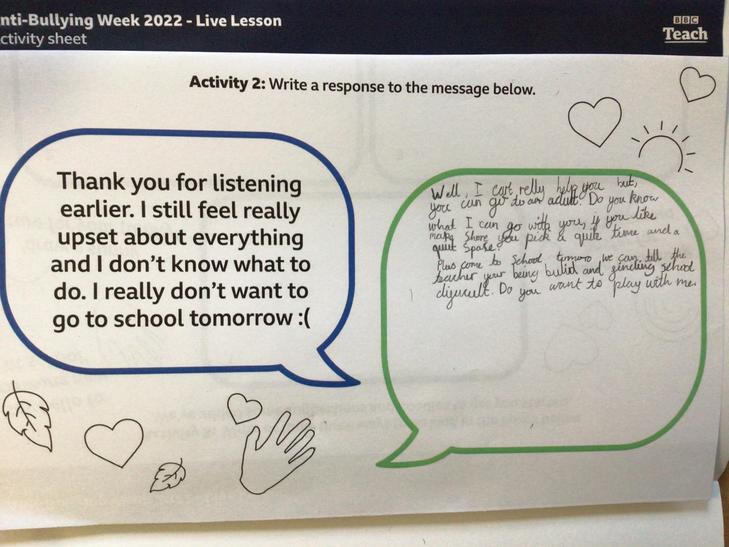 nti-Bullying Week 2022 - Live Lesson
ctivity sheet
BBC
Teach
Activity 2: Write a response to the message below.
Thank you for listening
earlier. I still feel really
upset about everything
and I don't know what to
do. I really don't want to
go to school tomorrow :(
Well, I cart relly help you but,
you can go to an adult. Do you know
what I can go with you, if you like
make shore you pick a quite time and a
quite spase?
Plus come to School tomoro we can tell the
teacher your being bulid and finding school
difucult. Do you want to play with me.